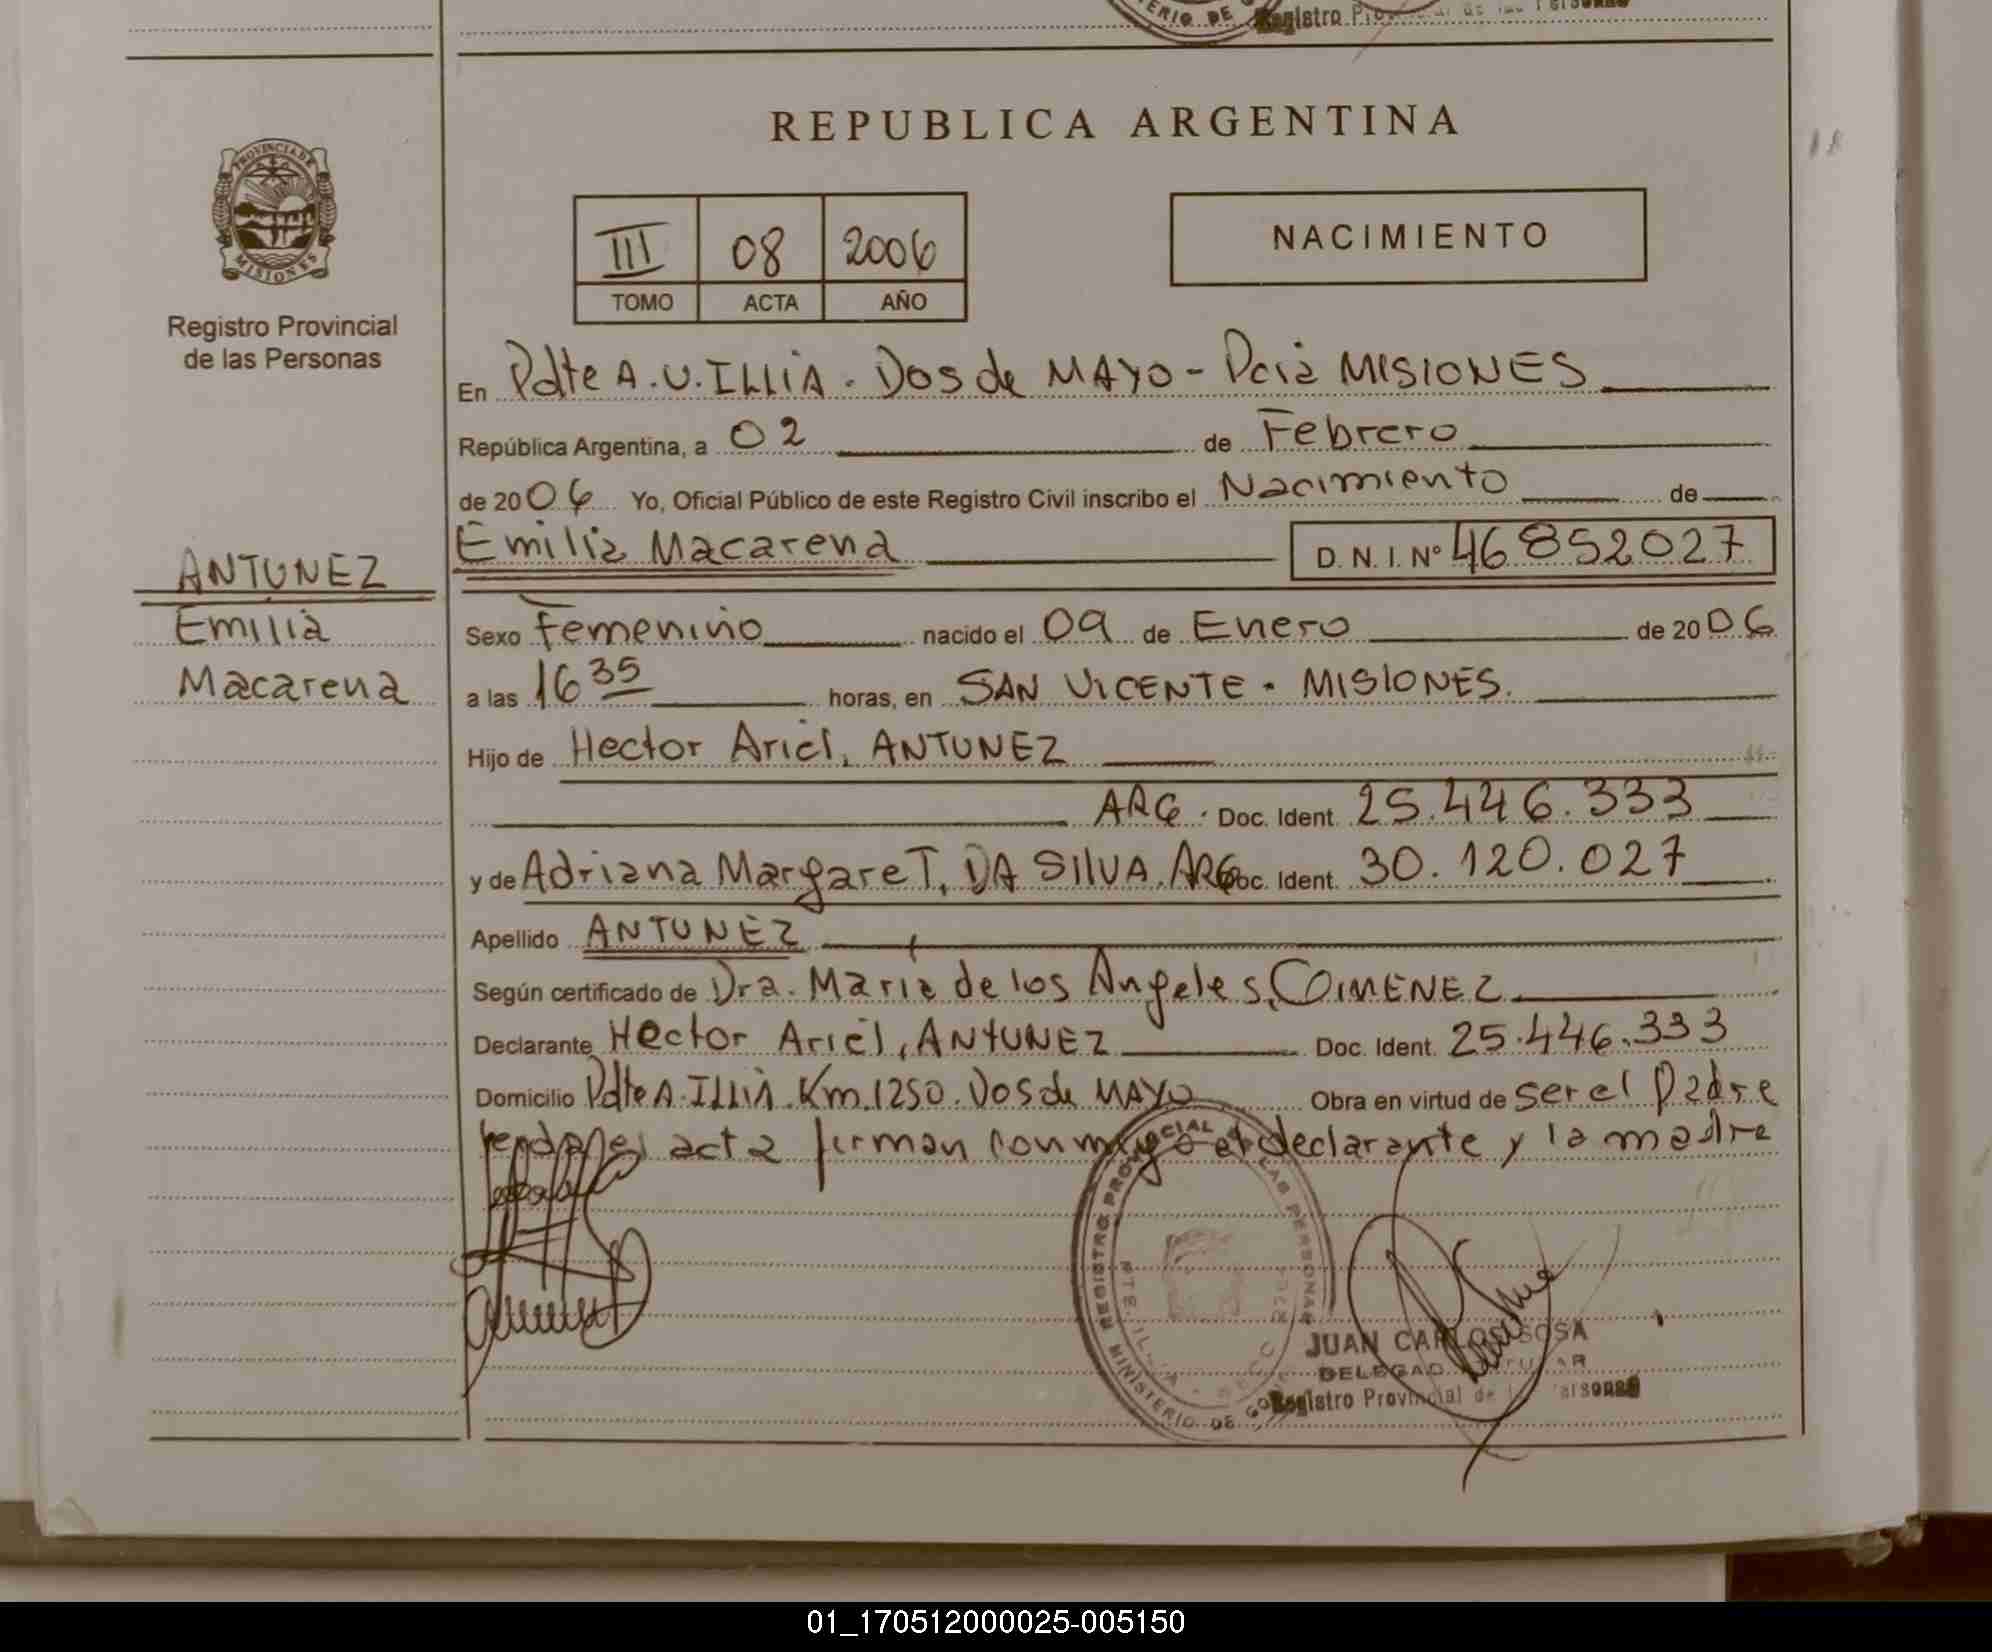 Registro
REPUBLICA ARGENTINA
PROVINCIA DE
MISIONES
Registro Provincial
de las Personas
III 08 2006
TOMO ACTA AÑO
NACIMIENTO
En Pdte A.U.ILLIA. Dos de MAYO - Pcia MISIONES
República Argentina, a 02 de Febrero
de 2006 Yo, Oficial Público de este Registro Civil inscribo el Nacimiento de
Emilia Macarena D. N. I. Nº 46852027
ANTUNEZ
Emilia
Macarena
Sexo Femenino nacido el 09 de Enero de 2006
a las 16 35 horas, en SAN VICENTE - MISIONES.
Hijo de Hector Ariel, ANTUNEZ
ARG. Doc. Ident. 25.446.333
y de Adriana MargareT, DA SILVA. ARG Doc. Ident. 30.120.027
Apellido ANTUNEZ
Según certificado de Dra. María de los Angeles, GIMENEZ
Declarante Hector Ariel, ANTUNEZ Doc. Ident. 25.446.333
Domicilio Pdte A. ILLIA. Km.1250. Dos de MAYO Obra en virtud de ser el Padre
acta firman conmigo el declarante y la madre
REGISTRO PROVINCIAL DE LAS PERSONAS
MINISTERIO DE
JUAN CARLOS SOSA
Registro Provincial de las Personas
01_170512000025-005150